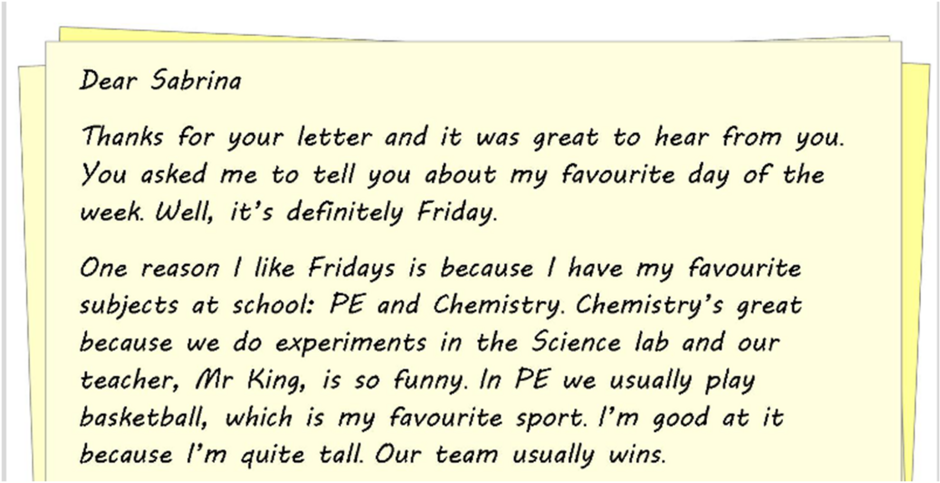 Dear Sabrina
Thanks for your letter and it was great to hear from you.
You asked me to tell you about my favourite day of the
week. Well, it's definitely Friday.
One reason I like Fridays is because I have my favourite
subjects at school: PE and Chemistry. Chemistry's great
because we do experiments in the Science lab and our
teacher, Mr King, is so funny. In PE we usually play
basketball, which is my favourite sport. I'm good at it
because I'm quite tall. Our team usually wins.